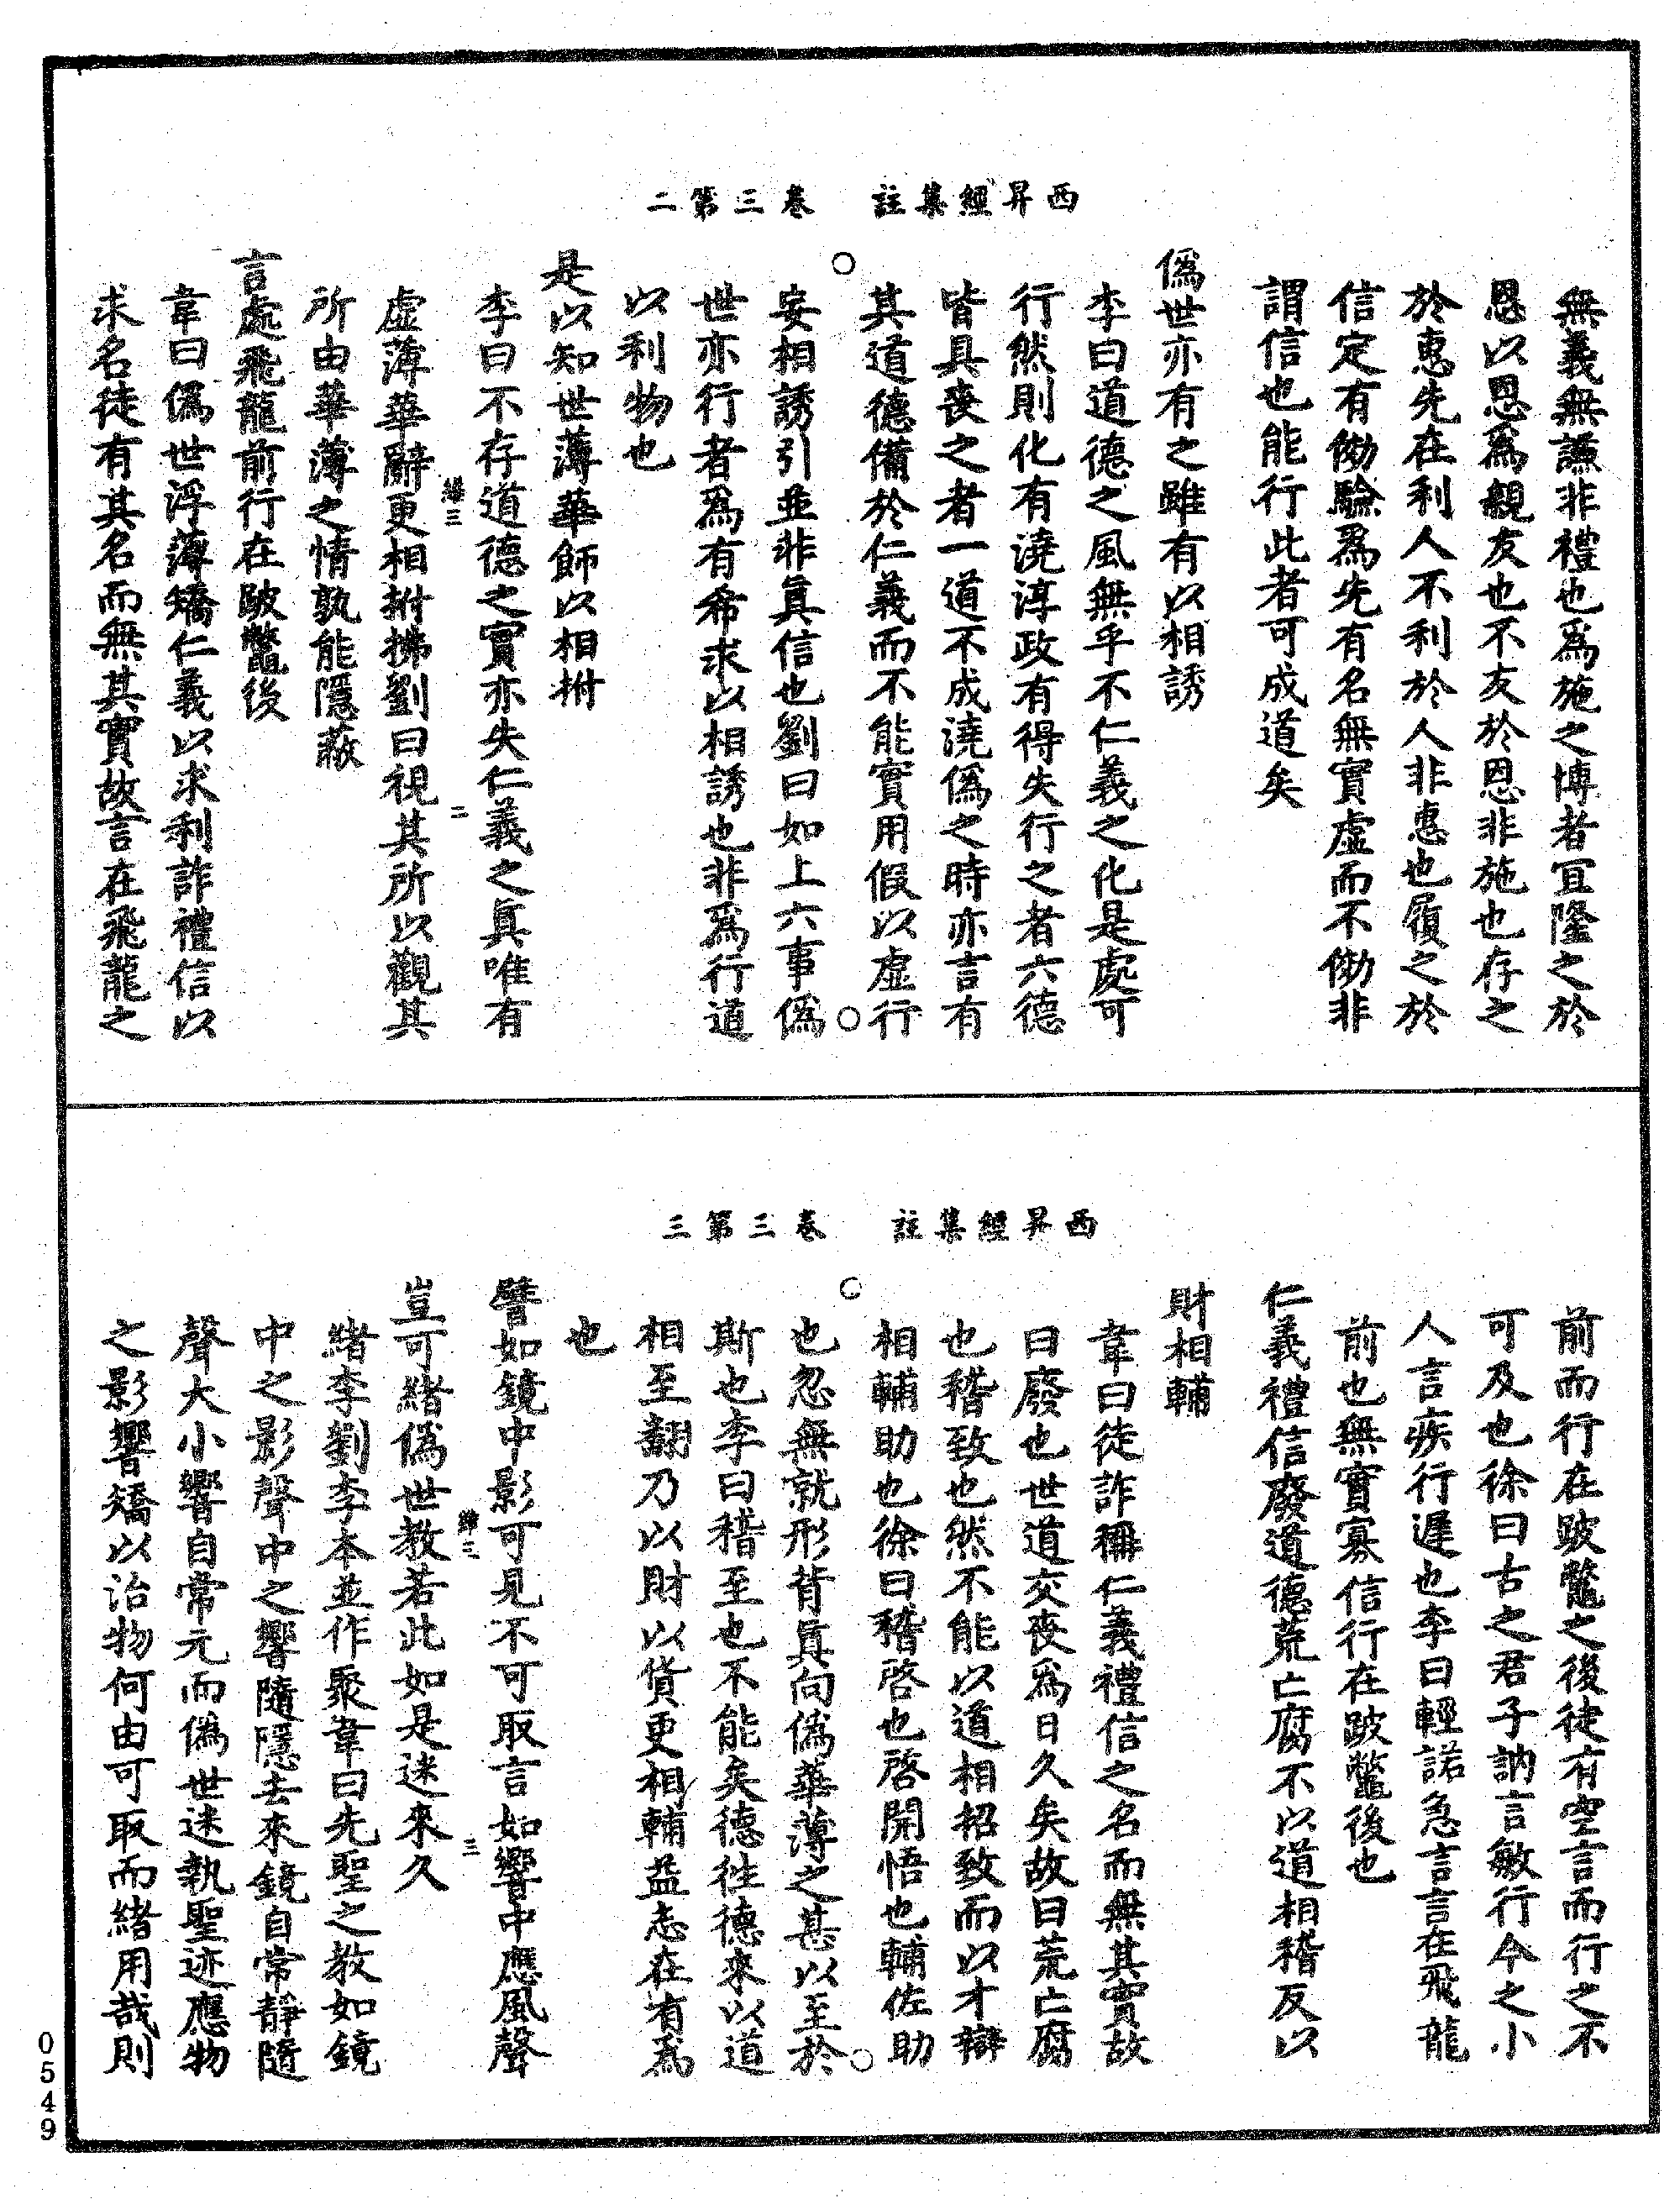 西昇經集註　卷三第二
無義無謙非禮也爲施之博者宜隆之於
恩以恩爲親友也不友於恩非施也存之
於惠先在利人不利於人非惠也履之於
信定有効驗爲先有名無實虛而不効非
謂信也能行此者可成道矣
僞世亦有之雖有以相誘
李曰道德之風無乎不仁義之化是處可
行然則化有澆淳政有得失行之者六德
皆具喪之者一道不成澆僞之時亦言有
其道德備於仁義而不能實用假以虛行
妄相誘引並非真信也劉曰如上六事僞
世亦行者爲有希求以相誘也非爲行道
以利物也
是以知世薄華師以相拊
李曰不存道德之實亦失仁義之真唯有
虛薄華辭更相拊拂劉曰視其所以觀其
所由華薄之情孰能隱蔽
言處飛龍前行在跛鼈後
韋曰僞世浮薄矯仁義以求利詐禮信以
求名徒有其名而無其實故言在飛龍之
絳三
二
西昇經集註　卷三第三
前而行在跛鼈之後徒有空言而行之不
可及也徐曰古之君子訥言敏行今之小
人言疾行遲也李曰輕諾急言言在飛龍
前也無實寡信行在跛鼈後也
仁義禮信廢道德荒亡腐不以道相稽反以
財相輔
韋曰徒詐稱仁義禮信之名而無其實故
曰廢也世道交喪爲日久矣故曰荒亡腐
也稽致也然不能以道相招致而以才辯
相輔助也徐曰稽啓也啓開悟也輔佐助
也忽無就形背真向僞華薄之甚以至於
斯也李曰稽至也不能矣德徃德來以道
相至翻乃以財以貨更相輔益志在有爲
也
譬如鏡中影可見不可取言如響中應風聲
豈可緒僞世教若此如是迷來久
緒李劉李本並作聚韋曰先聖之教如鏡
中之影聲中之響隨隱去來鏡自常靜隨
聲大小響自常元而僞世迷執聖迹應物
之影響矯以治物何由可取而緒用哉則
絳三
三
0549